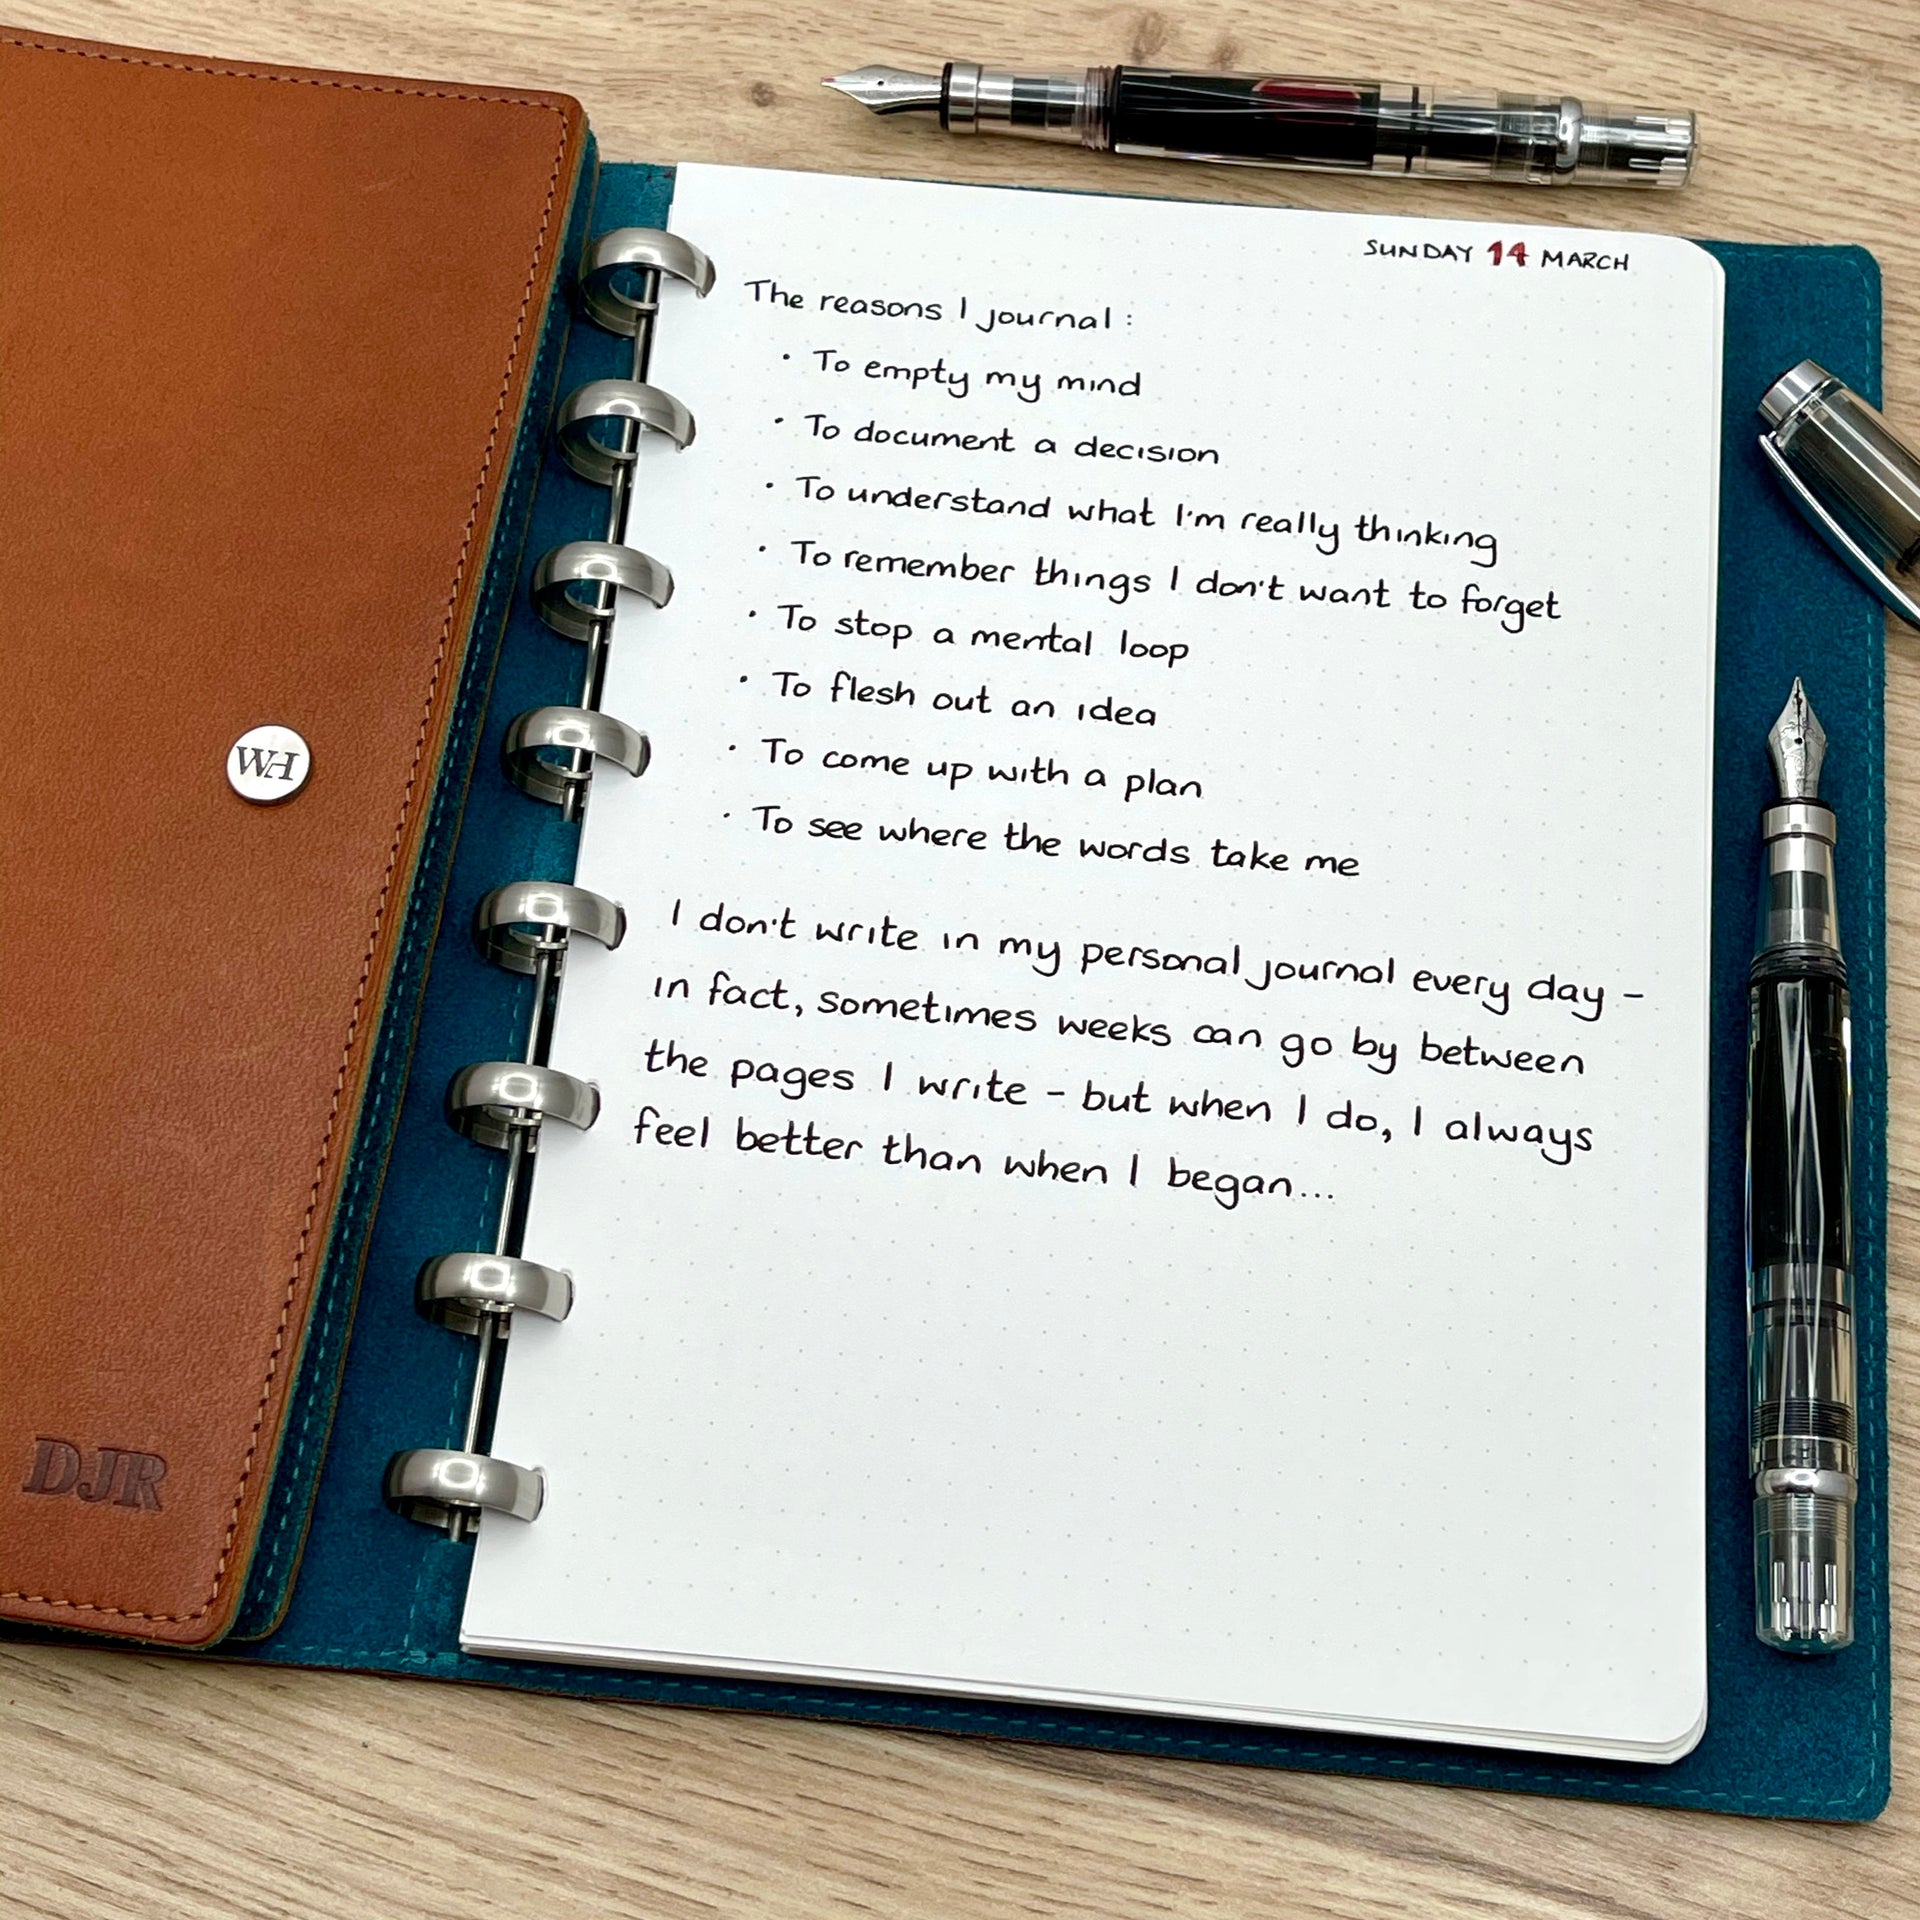 SUNDAY 14 MARCH
The reasons I journal :
• To empty my mind
• To document a decision
• To understand what I'm really thinking
• To remember things I don't want to forget
• To stop a mental loop
• To flesh out an idea
• To come up with a plan
• To see where the words take me
I don't write in my personal journal every day -
in fact, sometimes weeks can go by between
the pages I write - but when I do, I always
feel better than when I began...
WH
DJR